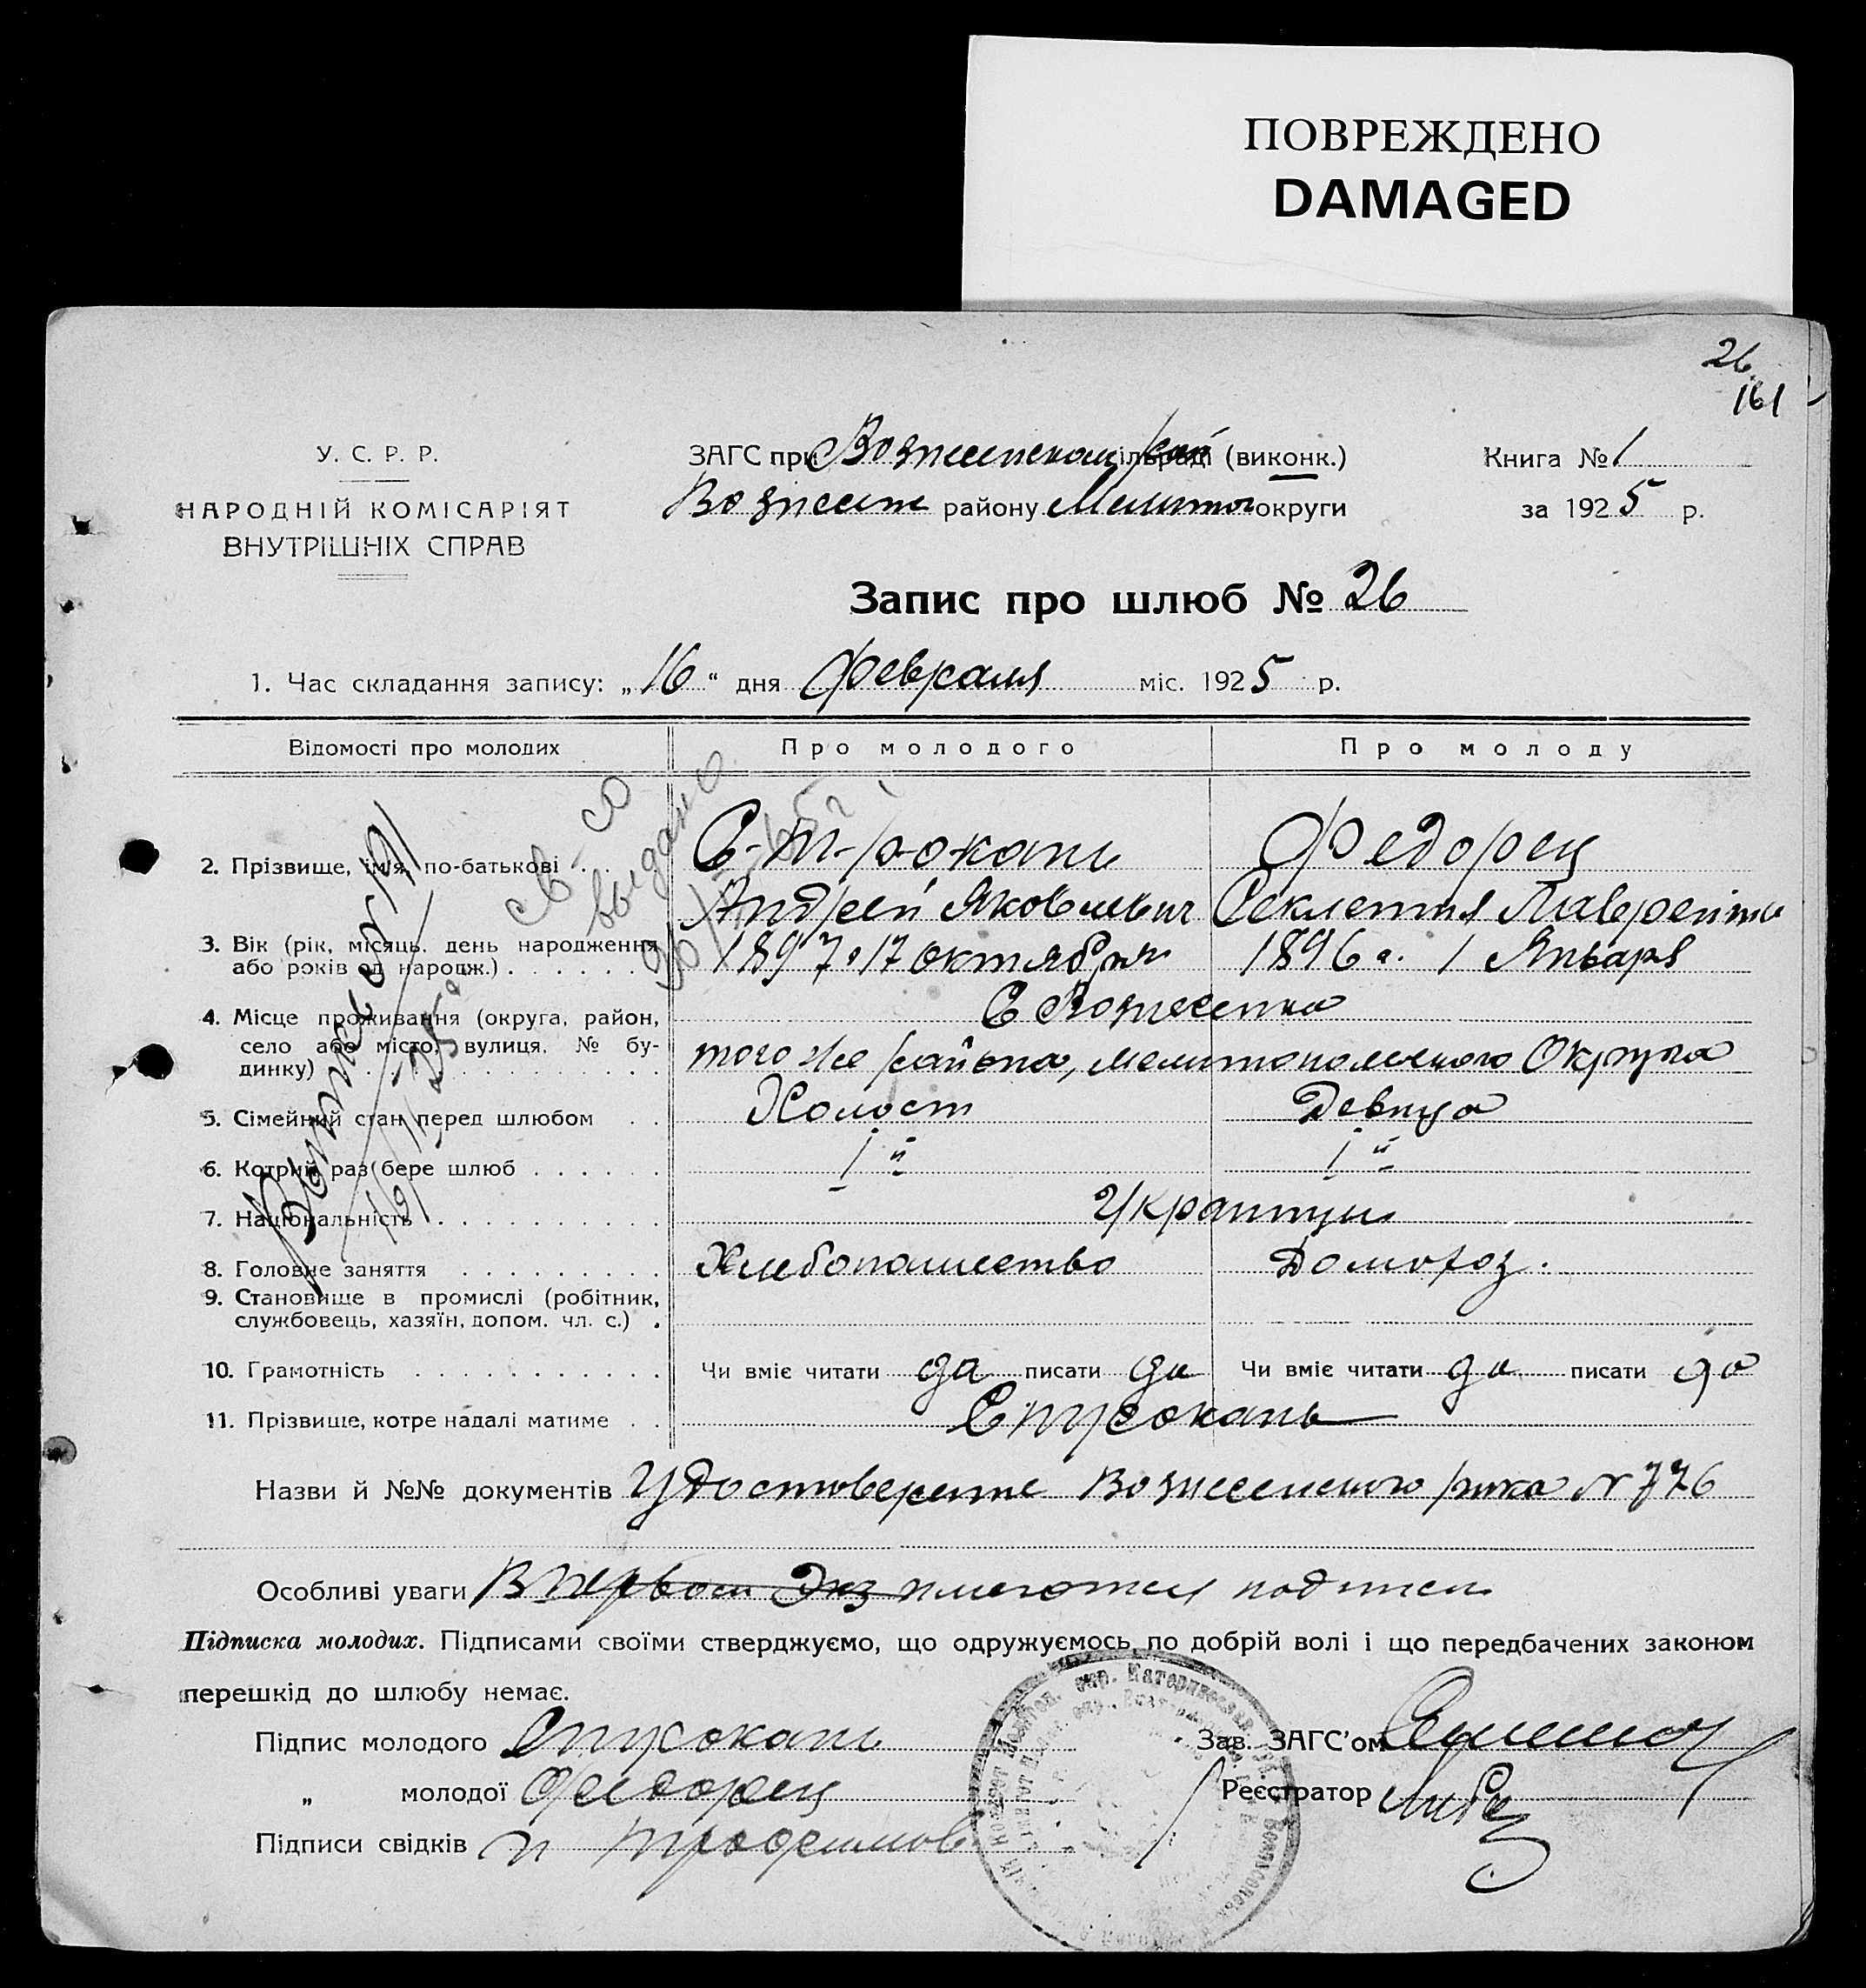 ПОВРЕЖДЕНО
DAMAGED
26
161
У. С. Р. Р.
НАРОДНІЙ КОМІСАРІЯТ
ВНУТРІШНІХ СПРАВ
ЗАГС при Вознесенском сільраді (виконк.)
Вознесен району Мелитоп округи
Книга № 1
за 1925 р.
Запис про шлюб № 26
1. Час складання запису: „16“ дня февраля міс. 1925 р.
Відомості про молодих Про молодого Про молоду
2. Прізвище, ім'я, по-батькові . . Федорец
Андрей Яковлевич Секлетия Лавренть
3. Вік (рік, місяць, день народження
або років од народж.) . . . . . . 1897 г 17 октября 1896 г. 1 Января
4. Місце проживання (округа, район,
село або місто, вулиця, № бу-
динку)
С Вознесенка
того же района, мелитопольского Округа
5. Сімейний стан перед шлюбом . . Холост Девица
6. Котрий раз бере шлюб . . . . . . 1й 1й
7. Національність . . . . . . . . . . Украинцы
8. Головне заняття . . . . . . . . . Хлебопашество Домохоз.
9. Становище в промислі (робітник,
службовець, хазяїн, допом. чл. с.) .
10. Грамотність . . . . . . . . . . . Чи вміє читати да писати да Чи вміє читати да писати да
11. Прізвище, котре надалі матиме . .
выдано
Назви й №№ документів Удостоверение Вознесенского рика № 776
Особливі уваги В первом Экз имеются подписи
Підписка молодих. Підписами своїми стверджуємо, що одружуємось по добрій волі і що передбачених законом
перешкід до шлюбу немає.
Підпис молодого
„ молодої Федорец
Підписи свідків
Зав. ЗАГС'ом
Реєстратор